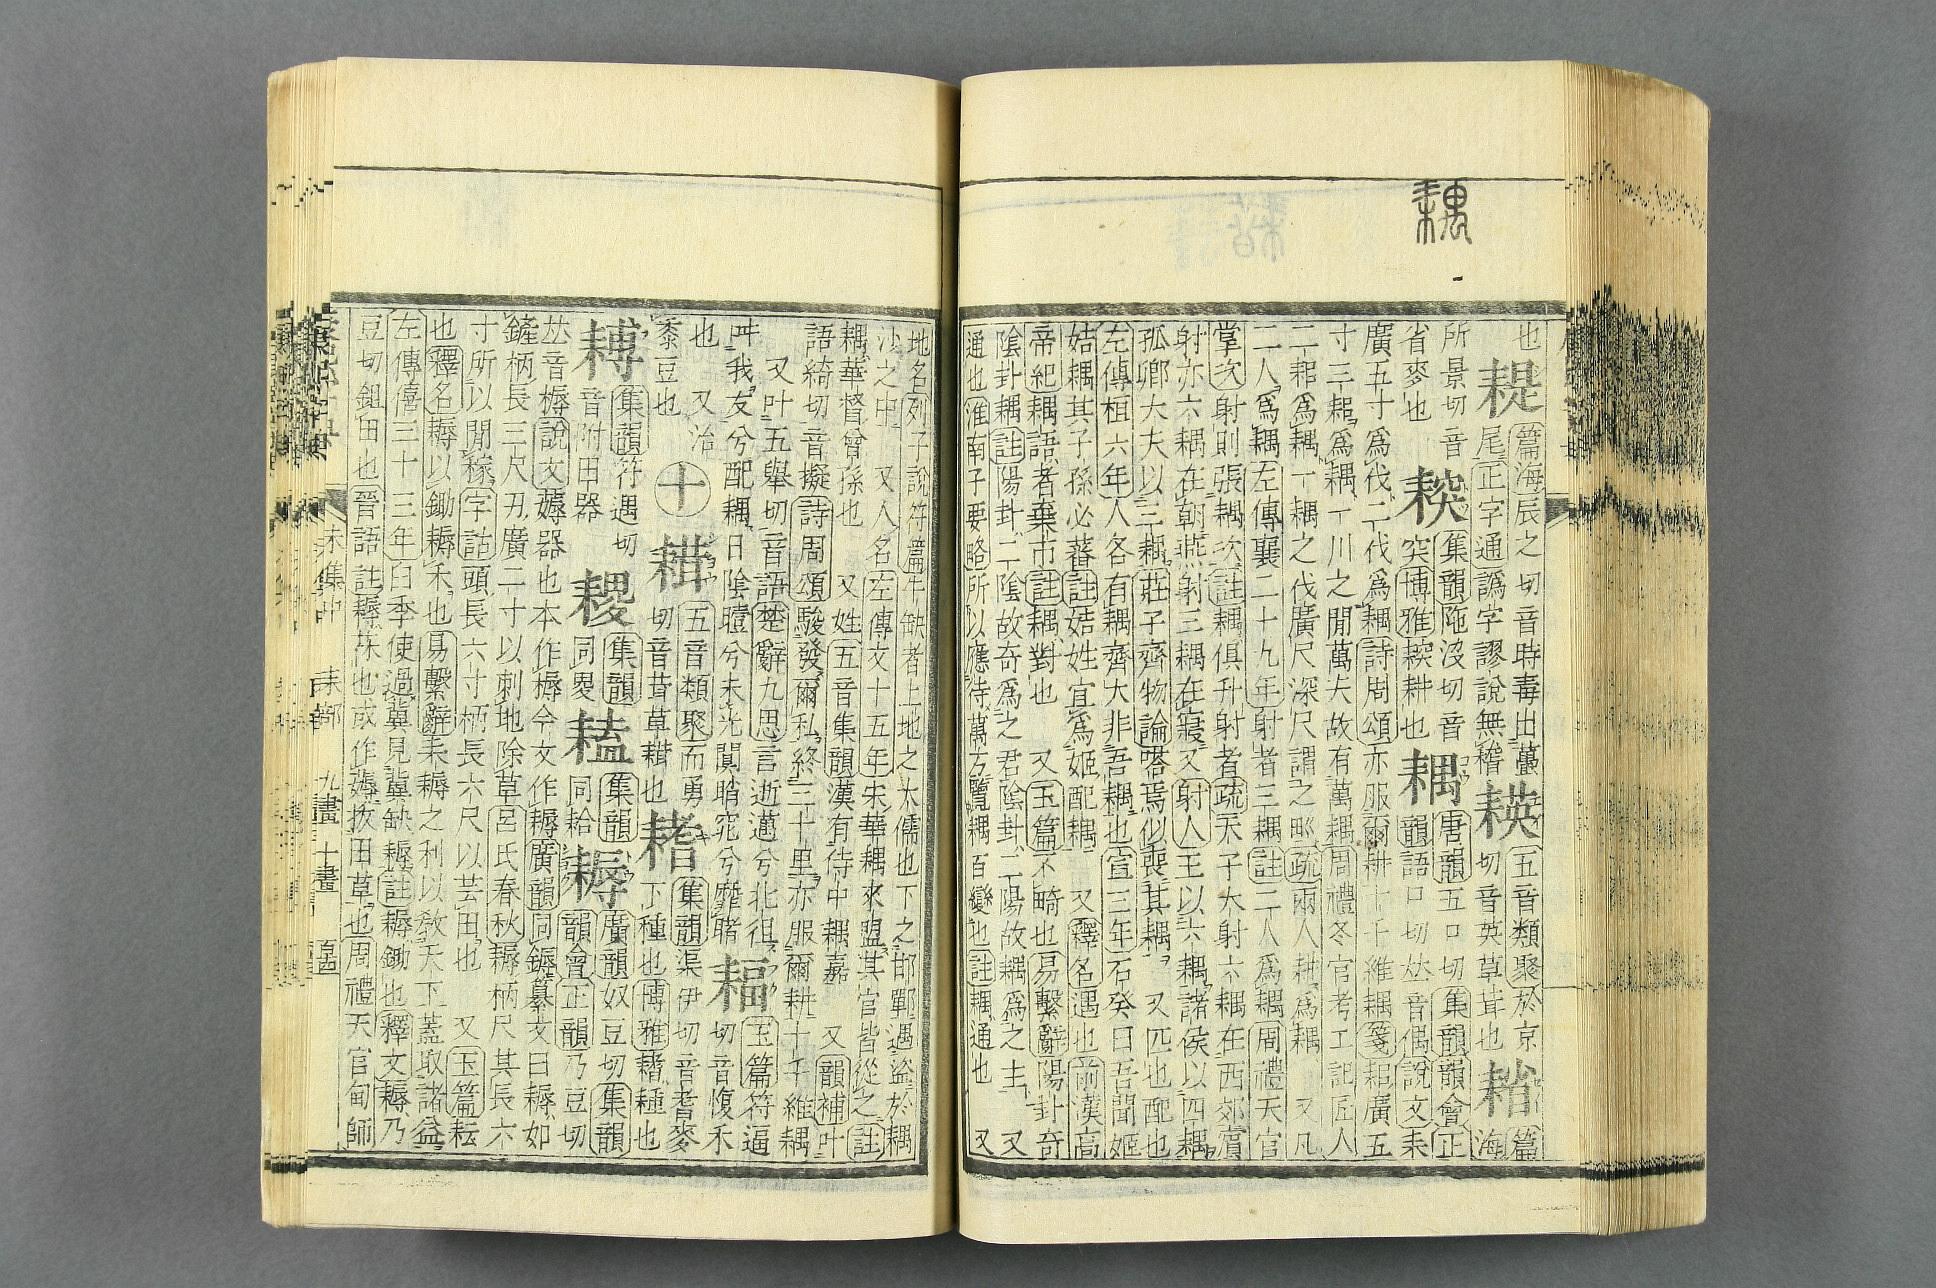 耦
也 耔 篇海辰之切音時毒出蠆 𦓱 五音類聚於京 𦓴 篇
尾正字通譌字謬說無稽 切音英草茸也 海
所景切音 耰 集韻陁沒切音 耦 唐韻五口切集韻韻會正
省麥也 突博雅耕也 韻語口切𠀤音偶說文耒
廣五寸爲伐二伐爲耦詩周頌亦服爾耕十千維耦箋耜廣五
寸三耜爲耦一川之閒萬夫故有萬耦周禮冬官考工記匠人
二耜爲耦一耦之伐廣尺深尺謂之𤰝疏兩人耕爲耦 又凡
二人爲耦左傳襄二十九年射者三耦註二人爲耦周禮天官
掌次射則張耦次註耦俱升射者疏天子大射六耦在西郊賓
射亦六耦在朝燕射三耦在寢又射人王以六耦諸侯以四耦
孤卿大夫以三耦莊子齊物論嗒焉似喪其耦 又匹也配也
左傳桓六年人各有耦齊大非吾耦也宣三年石癸曰吾聞姬
姞耦其子孫必蕃註姞姓宜爲姬配耦 又釋名遇也前漢高
帝紀耦語者棄市註耦對也 又玉篇不畸也易繫辭陽卦奇
隂卦耦註陽卦二隂故奇爲之君隂卦二陽故耦爲之主 又
通也淮南子要略所以應待萬方覽耦百變也註耦通也 又
地名列子說符篇牛缺者上地之大儒也下之邯鄲遇盜於耦
沙之中 又人名左傳文十五年宋華耦來盟其官皆從之註
耦華督曾孫也 又姓五音集韻漢有侍中耦嘉 又韻補叶
語綺切音擬詩周頌駿發爾私終三十里亦服爾耕十千維耦
又叶五舉切音語楚辭九思言逝邁兮北徂 𦓷 玉篇符逼
叫我友兮配耦日陰曀兮未光闃睄窕兮靡睹 切音愎禾
也 又冶 十 耤 五音類聚而勇 𦓺 集韻渠伊切音耆麥
黍豆也 切音茸草𦓺也 下種也博雅𦓺種也
𦔈 集韻符遇切 𦓹 集韻 𦓾 集韻 耨 廣韻奴豆切集韻
音附田器 同畟 同耠 韻會正韻乃豆切
𠀤音槈說文薅器也本作槈今文作耨廣韻同鎒纂文曰耨如
鏟柄長三尺刃廣二寸以刺地除草呂氏春秋耨柄尺其長六
寸所以閒稼字詁頭長六寸柄長六尺以芸田也 又玉篇耘
也釋名耨以鋤耨禾也易繫辭耒耨之利以敎天下蓋取諸益
左傳僖三十三年臼季使過冀見冀缺耨註耨鋤也釋文耨乃
豆切鉏田也晉語註耨茠也或作薅拔田草也周禮天官甸師
未集中 耒部 九畫 十畫